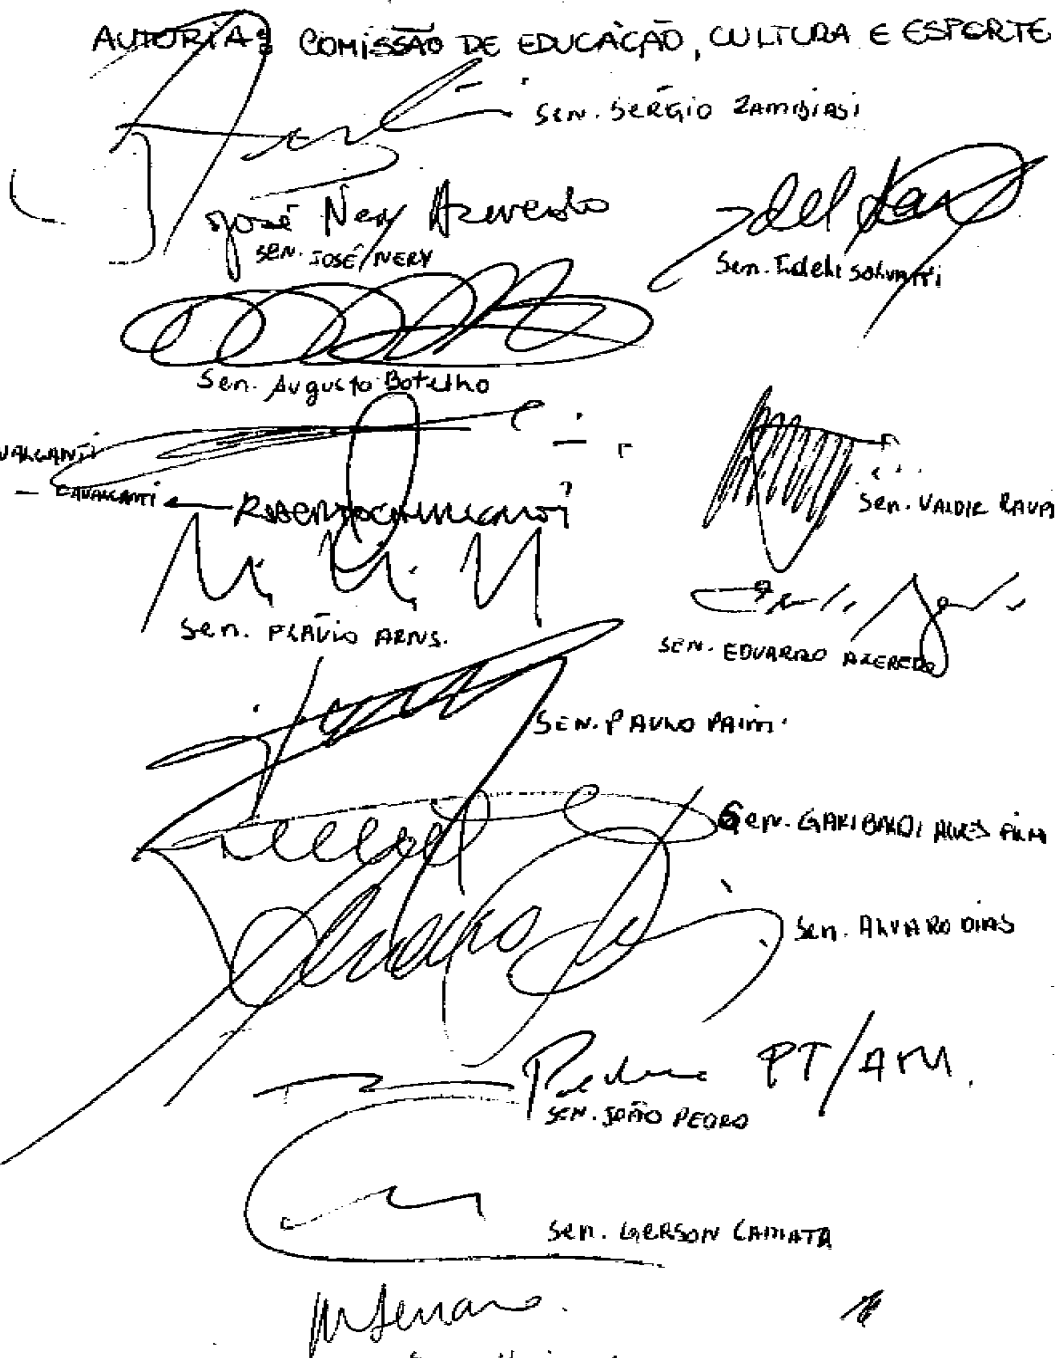 AUTORIA: COMISSÃO DE EDUCAÇÃO, CULTURA E ESPORTE
SEN. SÉRGIO ZAMBIASI
José Nery Azevedo
SEN. JOSÉ NERY
Sen. Ideli Salvatti
Sen. Augusto Botelho
CAVALCANTI
Sen. VALDIR RAUPP
Sen. FLÁVIO ARNS.
SEN. EDUARDO AZEREDO
SEN. PAULO PAIM
Sen. GARIBALDI ALVES FILHO
Alvaro Dias
Sen. ALVARO DIAS
Pedro PT/AM.
SEN. JOÃO PEDRO
Sen. GERSON CAMATA